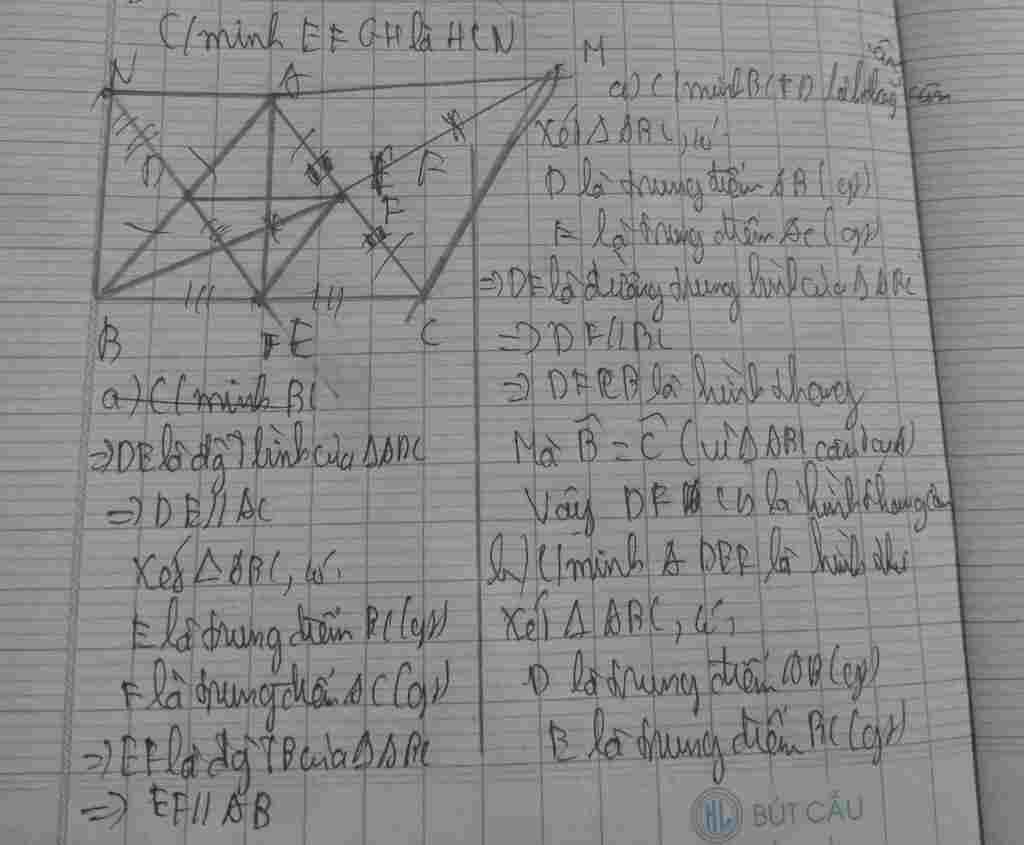 C/minh EFGH là HCN
N
A
M
D
E
F
F
B
E
C
a) C/minh BC
a) C/minh BCFD là
Xét △ABC, có:
D là trung điểm AB (gt)
F là trung điểm AC (gt)
=> DF là đường trung bình của △ABC
=> DF // BC
=> DFCB là hình thang
Mà B̂ = Ĉ (vì △ABC cân tại A)
Vậy DFCB là hình thang cân
b) C/minh ADEF là hình thoi
Xét △ABC, có:
D là trung điểm AB (gt)
E là trung điểm BC (gt)
=> DE là đg T bình của △ABC
=> DE // AC
Xét △ABC, có:
E là trung điểm BC (gt)
F là trung điểm AC (gt)
=> EF là đg TB của △ABC
=> EF // AB
HL BÚT CẨU